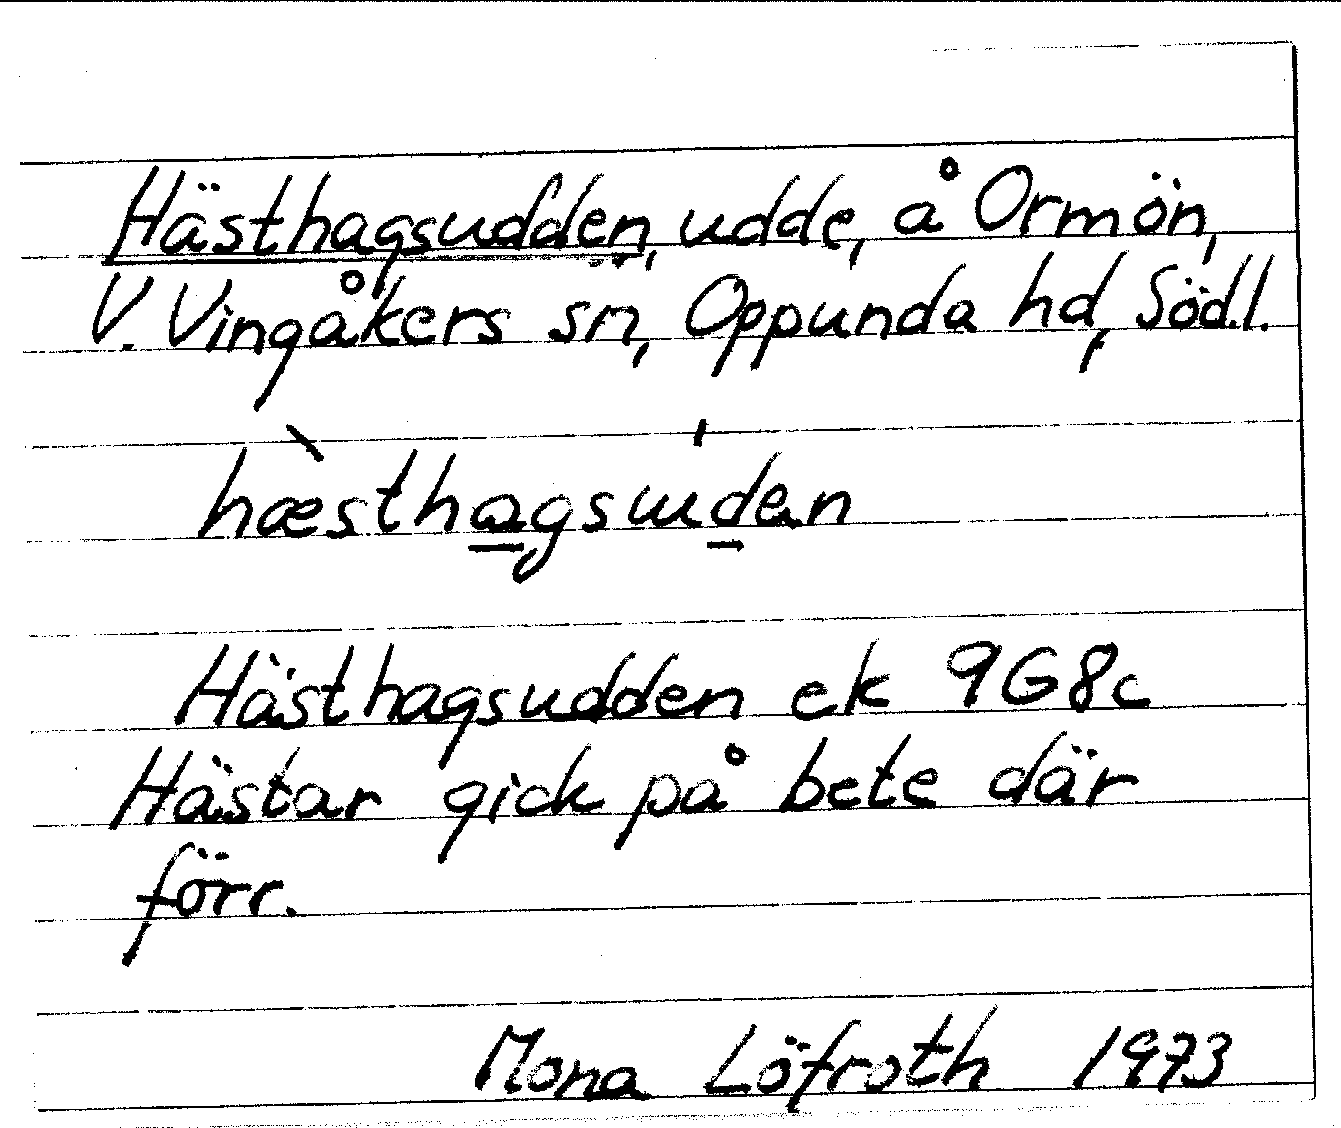 Hästhagsudden, udde, å Ormön,
V. Vingåkers sn, Oppunda hd, Södl.
hæ̀stha̱gsɯ́ḏen
Hästhagsudden ek 9G8c
Hästar gick på bete där
förr.
Mona Löfroth 1973